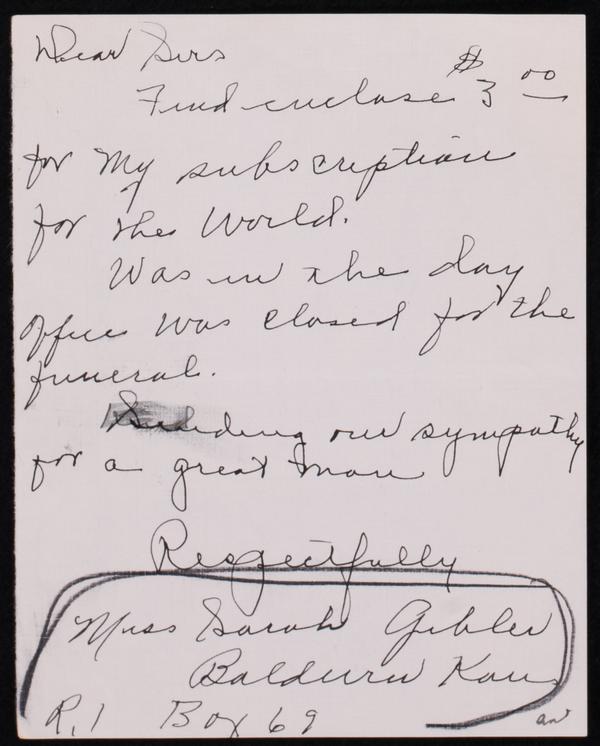 Dear Sirs
Find enclose $3.00
for my subscription
for the World.
Was in the day
office was closed for the
funeral.
Sending our sympathy
for a great man
Respectfully
Miss Sarah Gibler
Baldwin Kans
R.1 Box 69